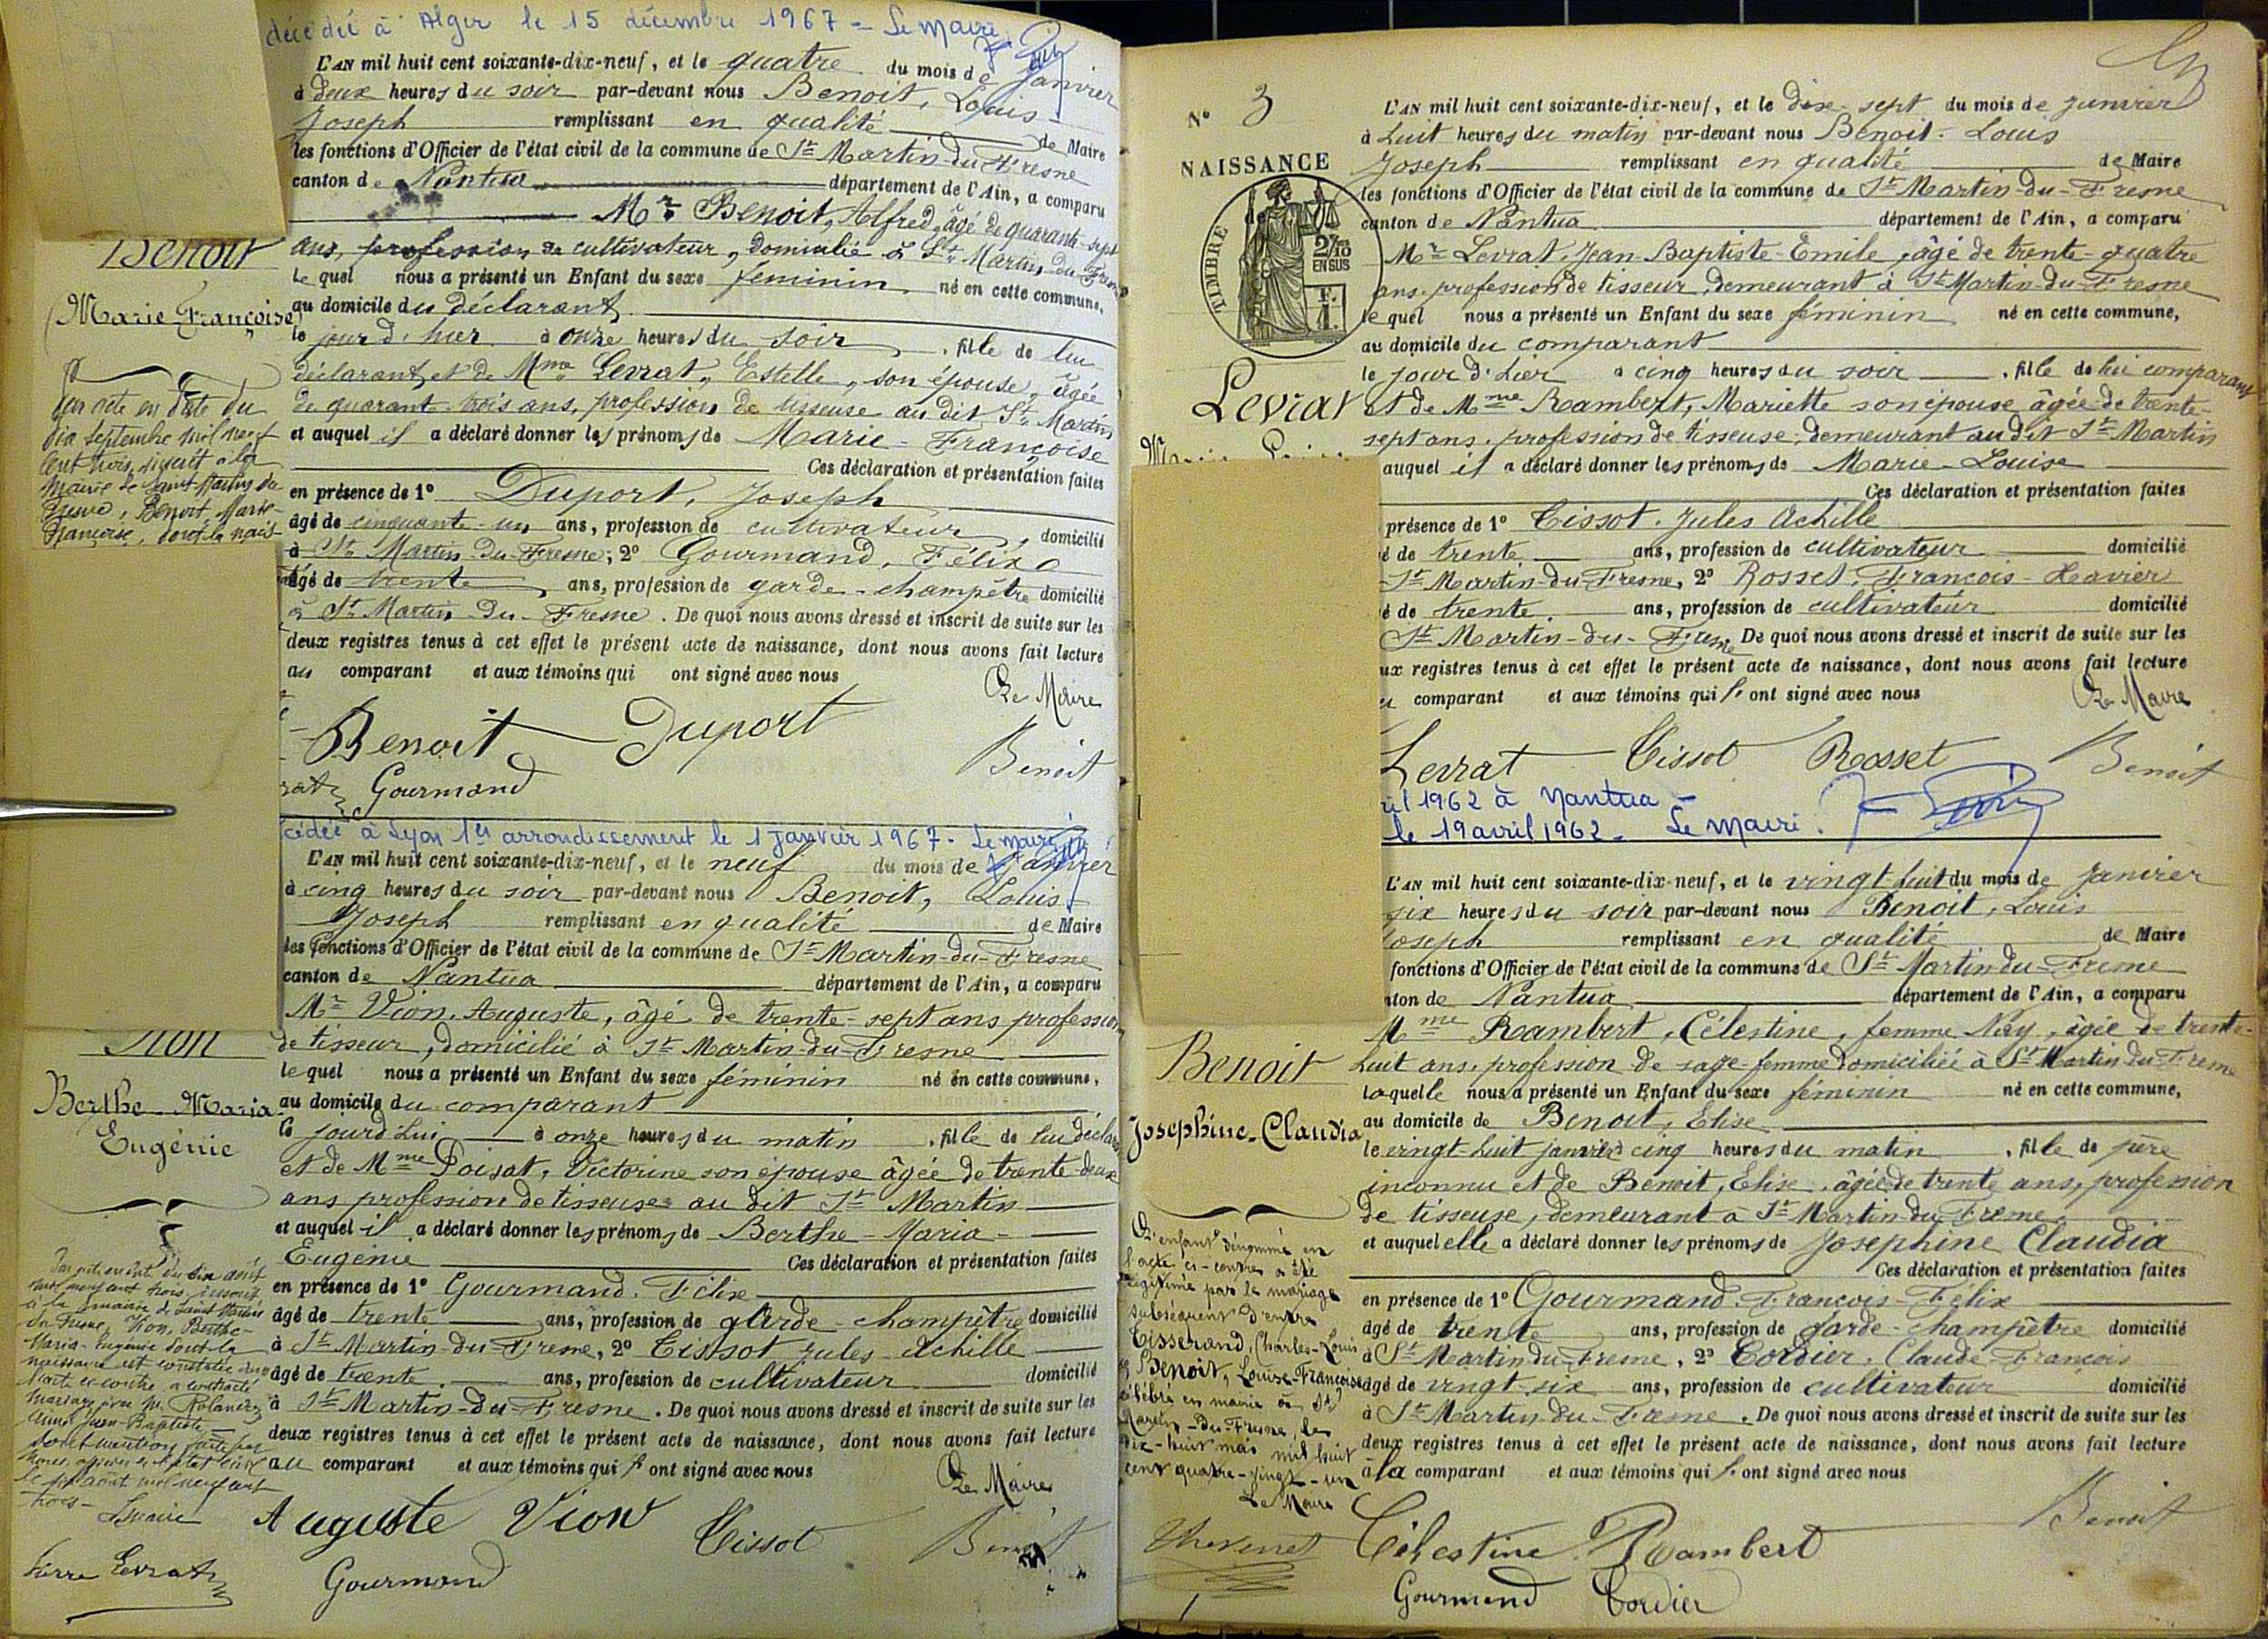 décédé à Alger le 15 décembre 1967 - Le Maire
L'AN mil huit cent soixante-dix-neuf, et le quatre du mois de Janvier
à deux heures du soir par-devant nous Benoit, Louis-
Joseph remplissant en qualité de Maire
les fonctions d'Officier de l'état civil de la commune de St Martin-du-Fresne
canton de Nantua département de l'Ain, a comparu
Mr Benoit, Alfred, âgé de quarante-sept
ans, profession de cultivateur, domicilié à St Martin-du-Fresne
le quel nous a présenté un Enfant du sexe féminin né en cette commune,
au domicile du déclarant
le jour d'hier à onze heures du soir, fille de lui
déclarant et de Mme Levrat, Estelle, son épouse, âgée
de quarant-trois ans, profession de tisseuse au dit St Martin
et auquel il a déclaré donner les prénoms de Marie-Françoise
Ces déclaration et présentation faites
en présence de 1° Duport, Joseph
âgé de cinquante-un ans, profession de cultivateur, domicilié
à St Martin-du-Fresne; 2° Gourmand, Félix
âgé de trente ans, profession de garde-champêtre domicilié
à St Martin-Du-Fresne. De quoi nous avons dressé et inscrit de suite sur les
deux registres tenus à cet effet le présent acte de naissance, dont nous avons fait lecture
au comparant et aux témoins qui ont signé avec nous
Le Maire
Benoit Duport
Benoit
Gourmand
Benoit
Marie-Françoise
Par acte en date du
dix septembre mil neuf
cent trois, inscrit à la
mairie de Saint-Martin du
Fresne, Benoit Marie-
Françoise, dont la nais-
cédée à Lyon 1er arrondissement le 1 janvier 1967 - Le maire
L'AN mil huit cent soixante-dix-neuf, et le neuf du mois de Janvier
à cinq heures du soir par-devant nous Benoit, Louis-
Joseph remplissant en qualité de Maire
les fonctions d'Officier de l'état civil de la commune de St Martin-du-Fresne
canton de Nantua département de l'Ain, a comparu
Mr Vion, Auguste, âgé de trente-sept ans profession
de tisseur, domicilié à St Martin-du-Fresne
le quel nous a présenté un Enfant du sexe féminin né en cette commune,
au domicile du comparant
le jourd'hui à onze heures du matin, fille de lui déclarant
et de Mme Poisat, Victorine son épouse âgée de trente-deux
ans profession de tisseuse au dit St Martin
et auquel il a déclaré donner les prénoms de Berthe-Maria-
Eugénie Ces déclaration et présentation faites
en présence de 1° Gourmand. Félix
âgé de trente ans, profession de garde-champêtre domicilié
à St Martin-du-Fresne, 2° Tissot Jules-Achille
âgé de trente ans, profession de cultivateur domicilié
à St Martin-du-Fresne. De quoi nous avons dressé et inscrit de suite sur les
deux registres tenus à cet effet le présent acte de naissance, dont nous avons fait lecture
au comparant et aux témoins qui ont signé avec nous
Le Maire
Auguste Vion Tissot Benoit
Gourmand
Berthe-Maria
Eugénie
Par acte en date du dix août
mil neuf cent trois inscrit
à la mairie de Saint Martin
du Fresne, Vion, Berthe-
Maria-Eugénie dont la
naissance est constatée
l'acte ci-contre, a contracté
mariage avec
Jean-Baptiste
dont mention faite par
nous, officier de l'état civil
le août mil neuf cent
trois-
Le maire
Pierre Levrat
N° 3
NAISSANCE
TIMBRE
2/10
EN SUS
L'AN mil huit cent soixante-dix-neuf, et le dix-sept du mois de janvier
à huit heures du matin par-devant nous Benoit-Louis
Joseph remplissant en qualité de Maire
les fonctions d'Officier de l'état civil de la commune de St Martin-du-Fresne
canton de Nantua département de l'Ain, a comparu
Mr Levrat, Jean-Baptiste-Emile, âgé de trente-quatre
ans, profession de tisseur, demeurant à St Martin-du-Fresne
le quel nous a présenté un Enfant du sexe féminin né en cette commune,
au domicile du comparant
le jour d'hier à cinq heures du soir, fille de lui comparant
et de Mme Rambert, Mariette son épouse âgée de trente-
sept ans, profession de tisseuse, demeurant au dit St Martin
auquel il a déclaré donner les prénoms de Marie-Louise
Ces déclaration et présentation faites
présence de 1° Tissot, Jules Achille
é de trente ans, profession de cultivateur domicilié
St Martin-du-Fresne, 2° Rosset, François-Xavier
é de trente ans, profession de cultivateur domicilié
St Martin-du-Fresne De quoi nous avons dressé et inscrit de suite sur les
ux registres tenus à cet effet le présent acte de naissance, dont nous avons fait lecture
comparant et aux témoins qui ont signé avec nous
Le Maire
Levrat Tissot Rosset Benoit
Levrat
ril 1962 à Nantua -
le 19 avril 1962 - Le maire.
L'AN mil huit cent soixante-dix-neuf, et le vingt huit du mois de Janvier
six heures du soir par-devant nous Benoit, Louis
Joseph remplissant en qualité de Maire
fonctions d'Officier de l'état civil de la commune de St Martin-du-Fresne
nton de Nantua département de l'Ain, a comparu
Mme Rambert, Célestine, femme Nay, âgée de trente-
huit ans, profession de sage-femme domiciliée à St Martin-du-Fresne
laquelle nous a présenté un Enfant du sexe féminin né en cette commune,
au domicile de Benoit, Elise
le vingt-huit janvier à cinq heures du matin, fille de père
inconnu et de Benoit, Elise, âgée de trente ans, profession
de tisseuse, demeurant à St Martin-du-Fresne
et auquel elle a déclaré donner les prénoms de Joséphine Claudia
Ces déclaration et présentation faites
en présence de 1° Gourmand. François-Félix
âgé de trente ans, profession de garde-champêtre domicilié
à St Martin-du-Fresne, 2° Cordier, Claude-François
âgé de vingt-six ans, profession de cultivateur domicilié
à St Martin-du-Fresne. De quoi nous avons dressé et inscrit de suite sur les
deux registres tenus à cet effet le présent acte de naissance, dont nous avons fait lecture
à la comparant et aux témoins qui ont signé avec nous
Benoit
Célestine Rambert
Gourmand Cordier
Benoit
Joséphine-Claudia
L'enfant dénommé en
l'acte ci-contre a été
légitimé par le mariage
subséquent d'entre
Tisserand, Charles-Louis
et Benoit, Louise-Françoise
célébré en mairie à St
Martin-du-Fresne, le
dix-huit mai mil huit
cent quatre-vingt-un
Le Maire
Thevenet